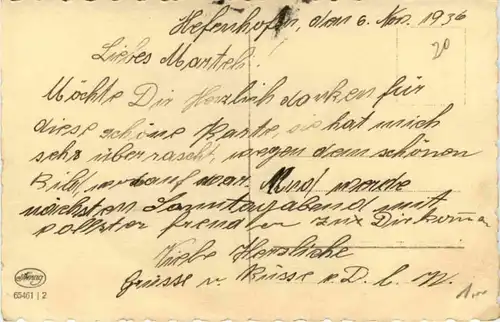 Hefenhofen, den 6. Nov. 1936
20
Liebes Marteli!
Möchte Dir Herzlich danken für
diese schöne Karte, sie hat mich
sehr überrascht, wegen dem schönen
Bild, worauf war. Und werde
nächsten Sonntagabend mit
vollster freuden zu Dir kommen
Viele Herzliche
Grüsse u. Küsse v. D. l. W.
65461 | 2